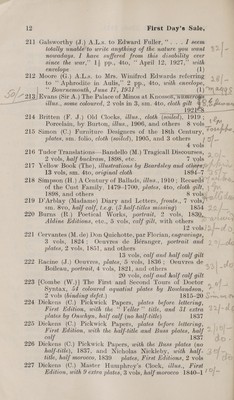 12 First Day's Sale,
211 Galsworthy (J.) A.L.s. to Edward Fuller, " . . . I seem
totally unable to write anything of the nature you want
nowadays. I have suffered from this disability ever
since the war," 1½ pp., 4to, "April 12, 1927," with
envelope (1)
212 Moore (G.) A.L.s. to Mrs. Winifred Edwards referring
to "Aphrodite in Aulis," 2 pp., 4to, with envelope,
"Bournemouth, June 17, 1931" (1)
213 Evans (Sir A.) The Palace of Minos at Knossos,
illus., some coloured, 2 vols in 3, sm. 4to, cloth gilt
214 Britten (F. J.) Old Clocks, illus., cloth (soiled), 1919;
Porcelaine, by Burton, illus., 1906, and others 8 vols
215 Simon (C.) Furniture Designers of the 18th Century,
plates, sm. folio, cloth (soiled), 1905, and 3 others
4 vols
216 Tudor Translations—Bandello (M.) Tragicall Discourses,
2 vols, half buckram, 1898, etc. 7 vols
217 Yellow Book (The), illustrations by Beardsley and others,
13 vols, sm. 4to, original cloth 1894-7
218 Simpson (H.) A Century of Ballads, illus., 1910; Records
of the Cust Family, 1479-1700, plates, 4to, cloth gilt,
1909, and others 8 vols
219 D'Arblay (Madame) Diary and Letters, fronts., 7 vols,
sm. 8vo, half calf, t.e.g. (3 half-titles missing) 1854
220 Burns (R.) Poetical Works, portrait, 2 vols, 1830,
Aldine Editions, etc., 5 vols, calf gilt, with others
12 vols
221 Cervantes (M. de) Don Quichotte, par Florian, engravings,
3 vols, 1824; Oeuvres de Béranger, portrait and
plates, 2 vols, 1851, and others
13 vols, calf and half calf gilt
222 Racine (J.) Oeuvres, plates, 5 vols, 1836; Oeuvres de
Boileau, portrait, 4 vols, 1821, and others
20 vols, calf and half calf gilt
223 [Combe (W.)] The First and Second Tours of Doctor
Syntax, 54 coloured aquatint plates by Rowlandson,
2 vols (binding defect.) 1815-20
224 Dickens (C.) Pickwick Papers, plates before lettering,
First Edition, with the "Veller" title, and 31 extra
plates by Onwhyn, half calf (no half-title) 1837
225 Dickens (C.) Pickwick Papers, plates before lettering,
First Edition, with the half-title and Buss plates, half
calf 1837
226 Dickens (C.) Pickwick Papers, with the Buss plates (no
half-title), 1837, and Nicholas Nickleby, with half-
title, half morocco, 1839 plates, First Editions, 2 vols
227 Dickens (C.) Master Humphrey's Clock, illus., First
Edition, with 9 extra plates, 3 vols, half morocco 1840-1